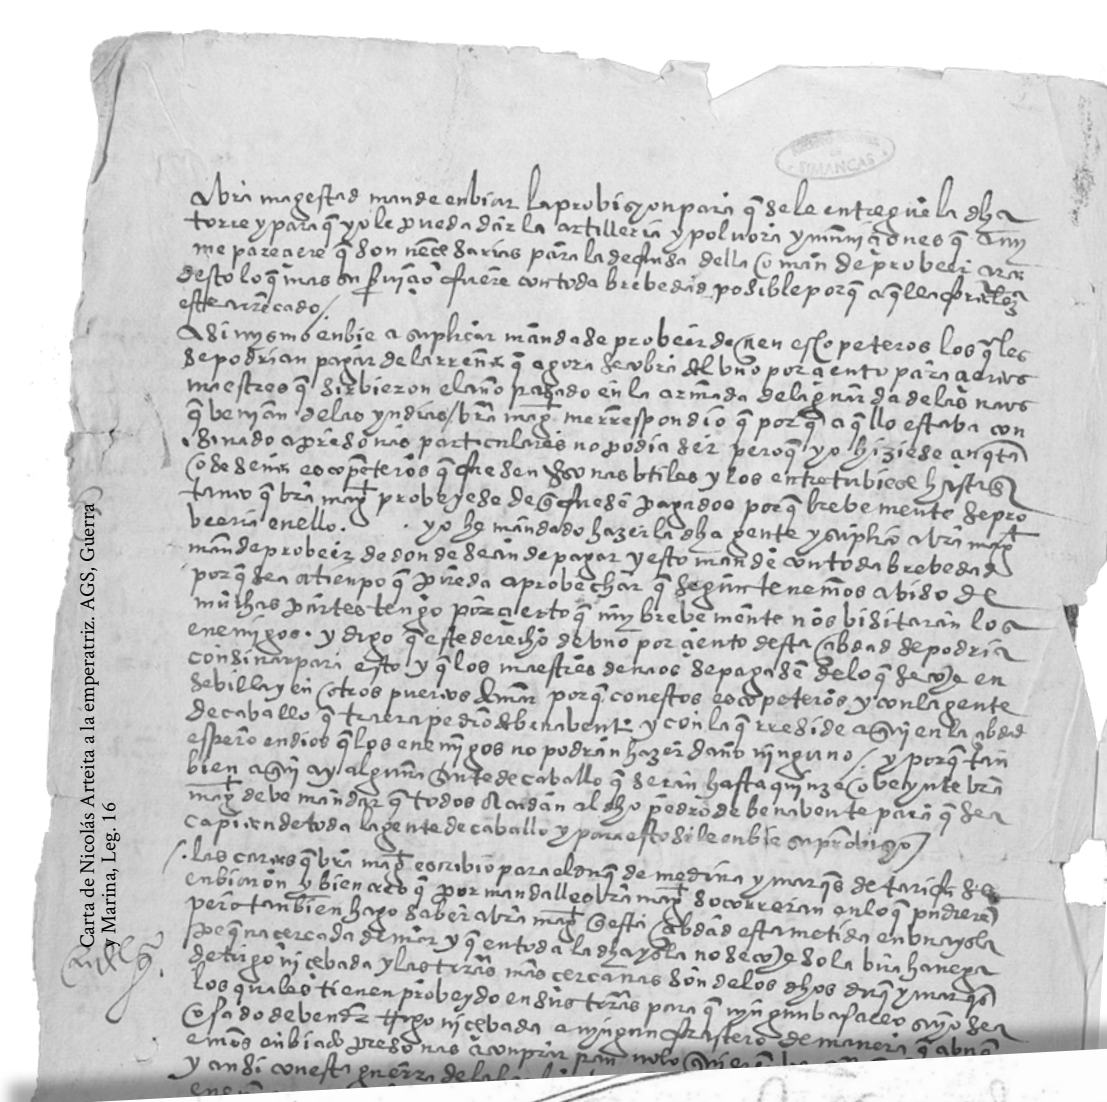 SIMANCAS
vra magestad mande enbiar la probisyon para q̃ se le entregue la dha
torre y para q̃ yo le pueda dar la artilleria y polvora y muniçiones q̃ a my
me pareçiere q̃ son neçesarias para la defensa della o mande probeer çerca
desto lo q̃ mas su serviçio fuere con toda brebedad posible porq̃ aq̃lla fortaleza
este a rrecado /
Asi mysmo enbie a suplicar mandase probeer de çien escopeteros los q̃les
se podrian pagar de la rrenta q̃ agora se cobra del uno por çiento para çiertos
maestres q̃ sirbieron el año pasado en la armada de la guarda de las naos
q̃ venyan de las yndias / vra magt me rrespondio q̃ porq̃ aq̃llo estaba con
sinado a presonas particulares no podia ser pero q̃ yo hiziese çinqta
o sesenta escopeteros q̃ fuesen presonas utiles y los entretubiese hasta
tanto q̃ vra magt probeyese de q̃ fuesen pagados porq̃ brebemente se pro
beeria en ello. yo he mandado hazer la dha gente y suplico a vra magt
mande probeer de donde sean de pagar y esto mande con toda brebedad
porq̃ sea a tiempo q̃ pueda aprobechar q̃ segun tenemos abiso de
muchas partes tengo por çierto q̃ muy brebemente nos visitaran los
enemigos. y digo q̃ este derecho de uno por çiento desta çibdad se podria
consinar para esto y q̃ los maestres de naos se pagasen de lo q̃ se coje en
sebilla y en otros puertos de mar porq̃ con estos escopeteros y con la gente
de caballo q̃ traera pedro de benavente y con la q̃ rreside aqui en la çibdad
espero en dios q̃ los enemigos no podran hazer daño ninguno / y porq̃ tan
bien aqui ay alguna gente de caballo q̃ seran hasta quinze o beynte vra
magt debe mandar q̃ todos acudan al dho pedro de benavente para q̃ sea
capitan de toda la gente de caballo y para esto se le enbie su probisyon /
/. las cartas q̃ vra magt escribio para el duq̃ de medina y marq̃s de tarifa se
enbiaron y bien creo q̃ por mandallo vra magt socorreran en lo q̃ pudieren
pero tanbien hago saber a vra magt q̃ esta çibdad esta metida en una ysla
peq̃na çercada de mar y q̃ en toda la dha ysla no se coje sola una hanega
de trigo ni çebada y las trras mas çercanas son de los dhos duq̃ y marq̃s
los quales tienen probeydo en sus trras para q̃ nyngun basallo suyo sea
osado de vender trigo ni çebada a nyngun forastero de manera q̃ abnq̃
emos enbiado presonas a conprar pan
y ansi con esta guerra de
Carta de Nicolás Arteita a la emperatriz. AGS, Guerra
y Marina, Leg. 16